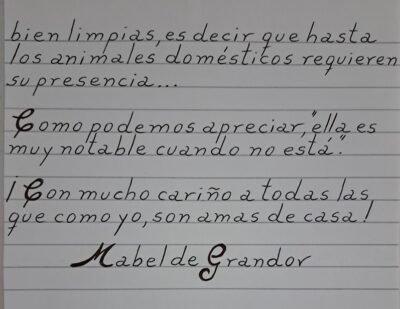 bien limpias, es decir que hasta
los animales domésticos requieren
su presencia...
Como podemos apreciar, "ella es
muy notable cuando no está".
¡Con mucho cariño a todas las,
que como yo, son amas de casa!
Mabel de Grandor